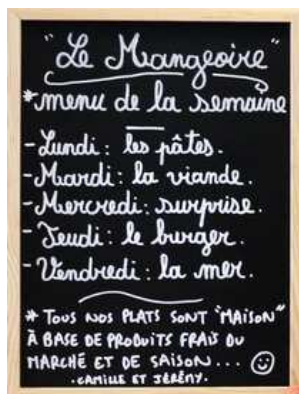 "Le Mangeoire"
*menu de la semaine
- Lundi : les pâtes.
- Mardi : la viande.
- Mercredi : surprise.
- Jeudi : le burger.
- Vendredi : la mer.
* TOUS NOS PLATS SONT "MAISON"
À BASE DE PRODUITS FRAIS DU
MARCHÉ ET DE SAISON...
. CAMILLE ET JÉRÉMY.